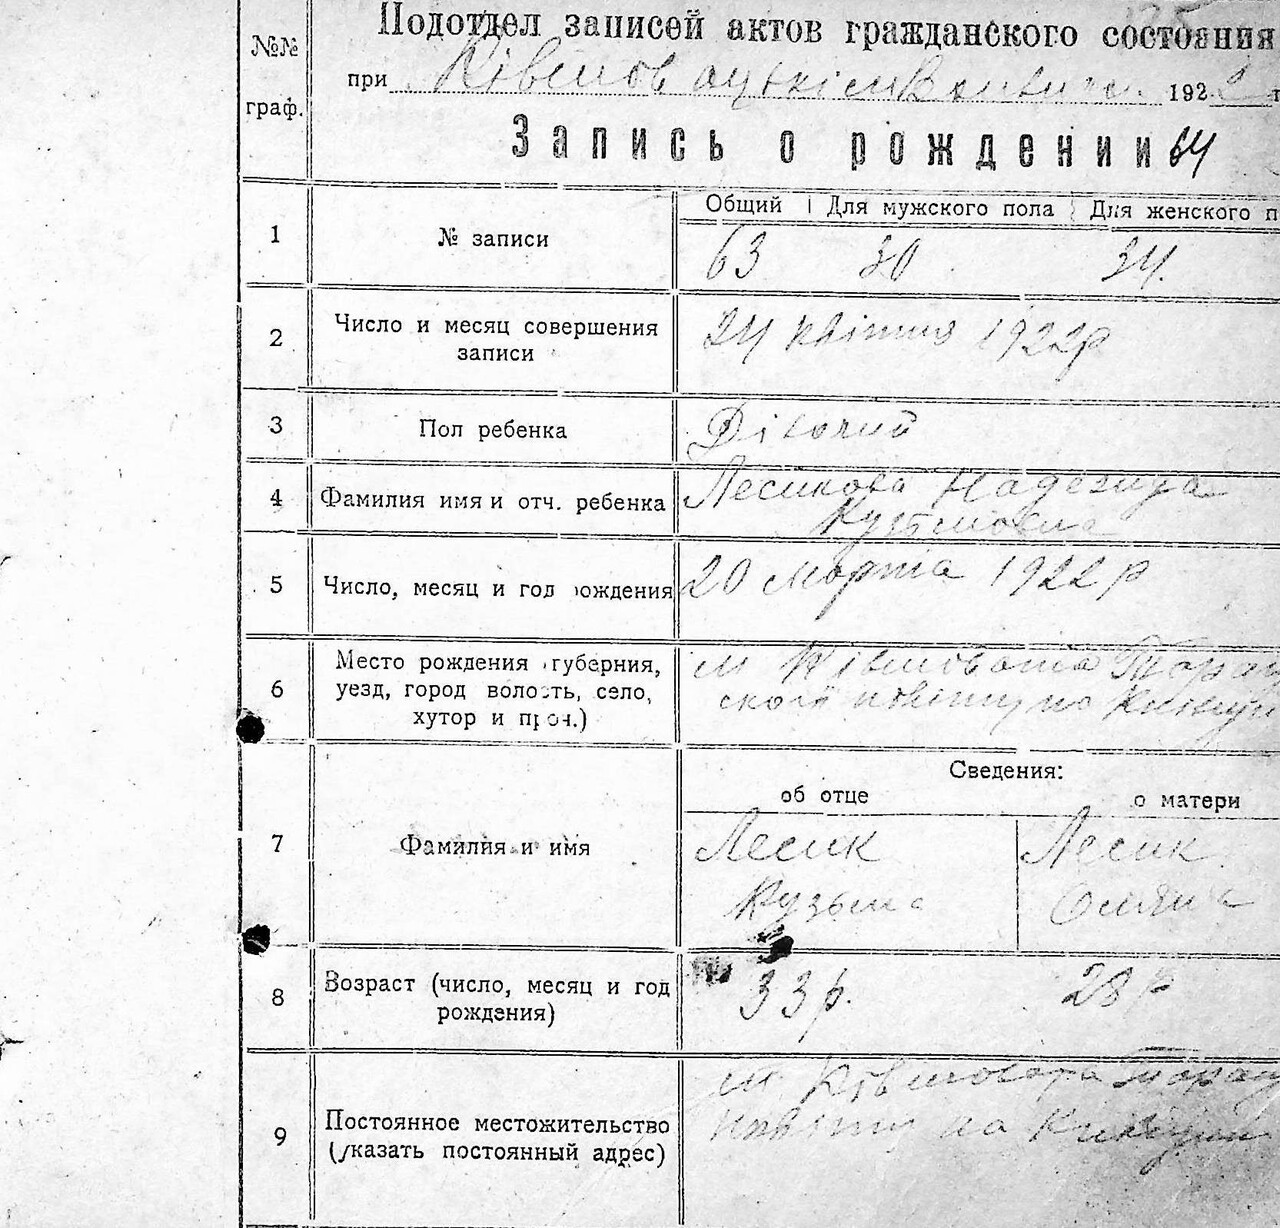 Подотдел записей актов гражданского состояния
№№ граф.
при 1922 г
Запись о рождении 64
Общий Для мужского пола Для женского п
1 № записи 63 30 34.
2 Число и месяц совершения
записи
24 квітня 1922р
3 Пол ребенка Дівочий
4 Фамилия имя и отч. ребенка Лесикова Надежда
Кузьмовна
5 Число, месяц и год рождения 20 марта 1922 р
6 Место рождения губерния,
уезд, город волость, село,
хутор и проч.)
м Таращ
ского повіту на
Сведения:
об отце о матери
7 Фамилия и имя
Лесик Лесик
Кузьма
8 Возраст (число, месяц и год
рождения)
33 р. 28 р
9 Постоянное местожительство
(указать постоянный адрес)
м. Таращ
повіту на